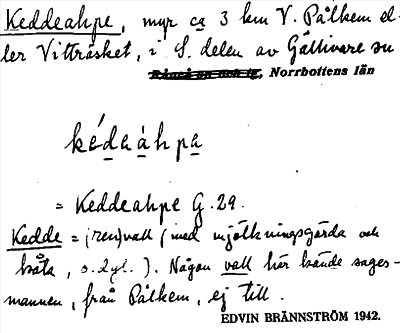 Keddeahpe, myr ca 3 km V. Pålkem el-
ler Vitträsket, i S. delen av Gällivare sn
Råneå sn och tg, Norrbottens län
kéd̲eȧhpa̲
= Keddeahpe G. 29.
Kedde = (ren)vall (med mjölkningsgärda och
kåta, o. dyl.). Någon vall här kände sages-
mannen, från Pålkem, ej till.
EDVIN BRÄNNSTRÖM 1942.